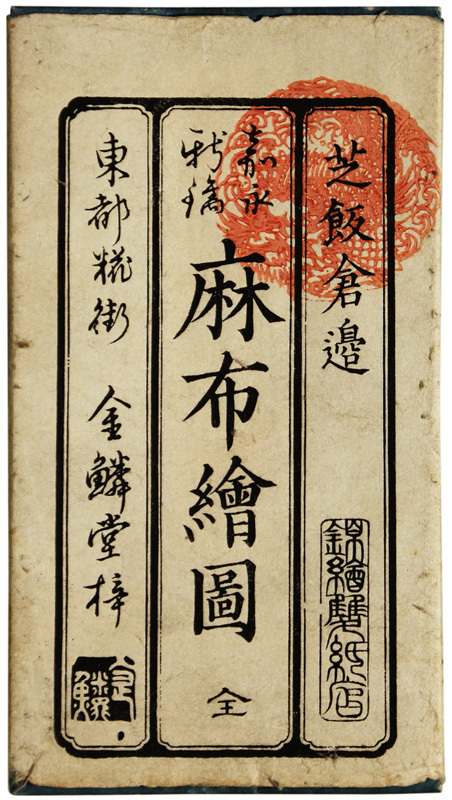 芝飯倉邉
錦繪雙紙店
嘉永
新鐫
麻布繪圖
全
東都糀街 金鱗堂梓